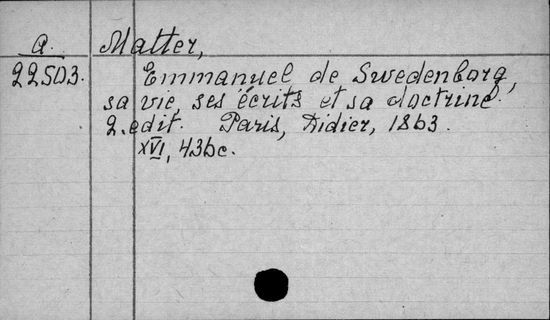 a. Matter,
22503. Emmanuel de Swedenborg,
sa vie, ses écrits et sa doctrine.
2. edit. Paris, Didier, 1863.
XVI, 436c.